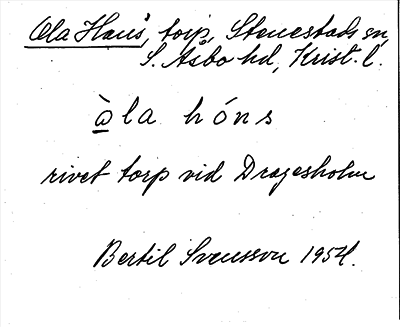 Ola Hans, torp, Stenestads sn,
S. Åsbo hd, Krist. l.
àla hóns
rivet torp vid Dragesholm
Bertil Svensson 1954.